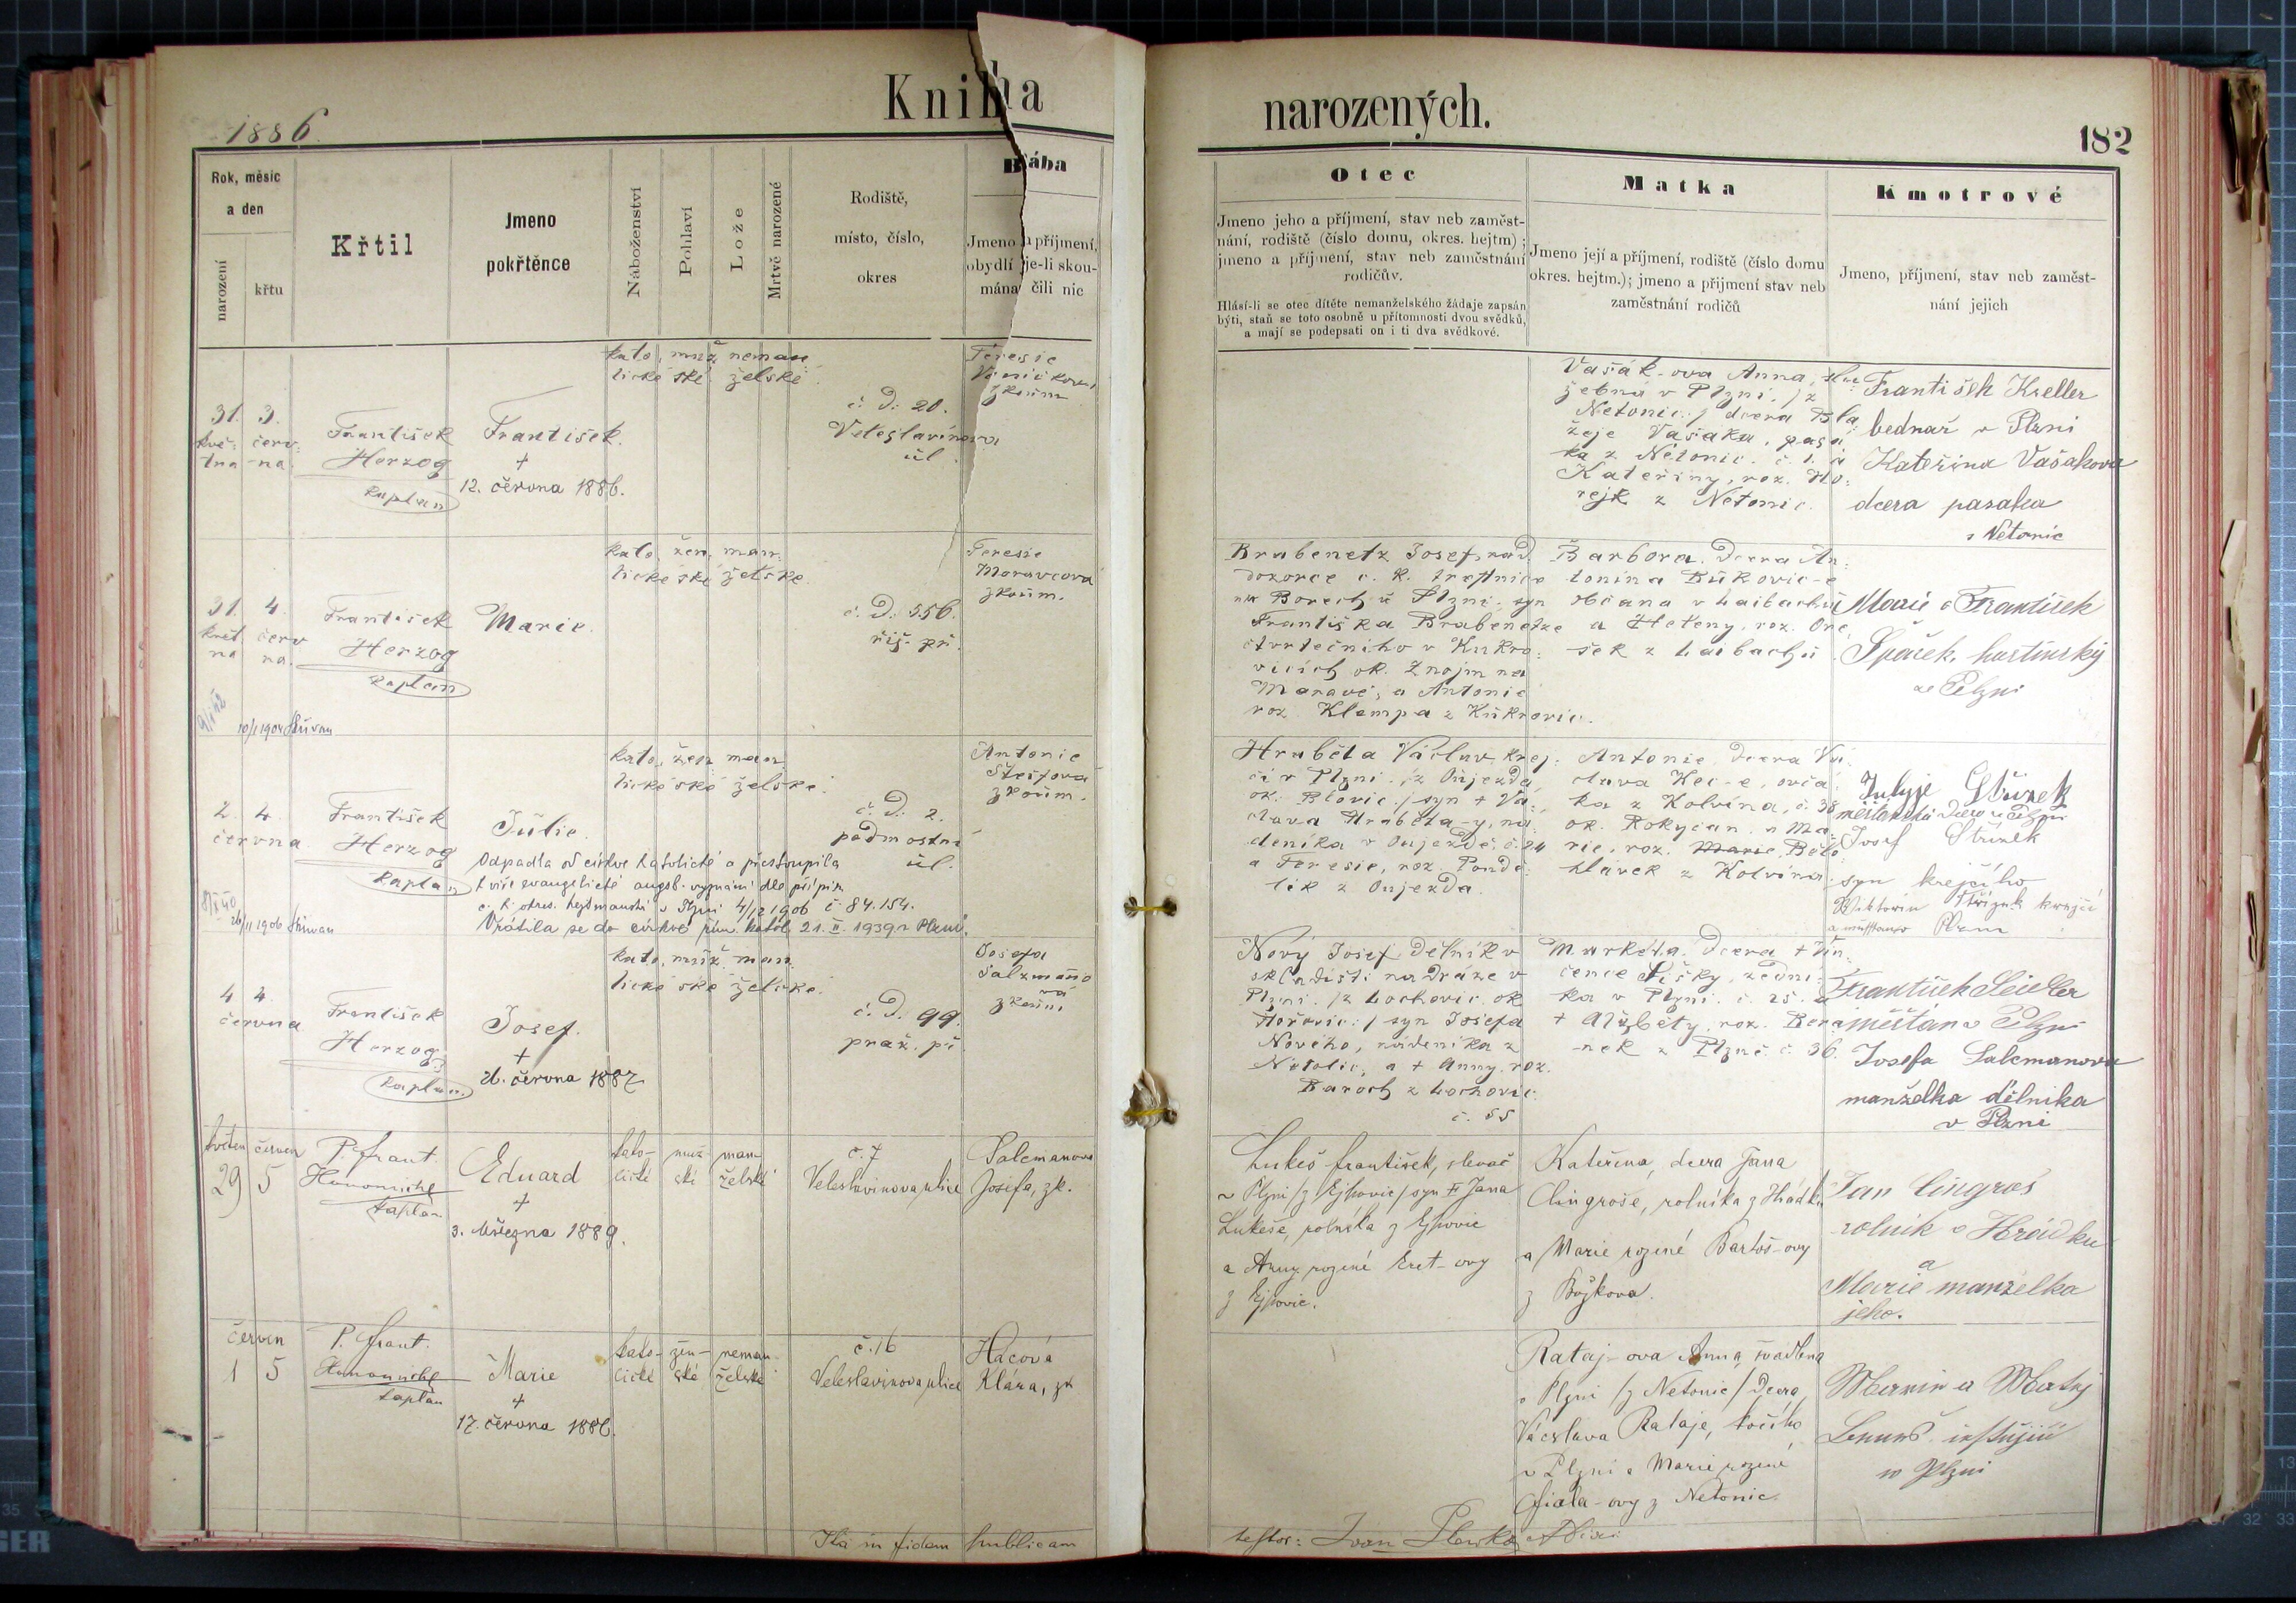 Kniha
narozených.
1886.
182
Rok, měsíc
a den
narození
křtu
Křtil
Jmeno
pokřtěnce
Náboženství
Pohlaví
Lože
Mrtvě narozené
Rodiště,
místo, číslo,
okres
Bába
Jmeno a příjmení,
obydlí je-li skou-
mána čili nic
Otec
Jmeno jeho a příjmení, stav neb zaměst-
nání, rodiště (číslo domu, okres. hejtm) ;
jmeno a příjmení, stav neb zaměstnání
rodičův.
Hlásí-li se otec dítěte nemanželského žádaje zapsán
býti, staň se toto osobně u přítomnosti dvou svědků,
a mají se podepsati on i ti dva svědkové.
Matka
Jmeno její a příjmení, rodiště (číslo domu
okres. hejtm.); jmeno a příjmení stav neb
zaměstnání rodičů
Kmotrové
Jmeno, příjmení, stav neb zaměst-
nání jejich
31. 3.
kvě- červ-
tna -na.
František
Herzog
kaplan
František.
+
12. června 1886.
kato- muž- neman-
lické ské želské
č. d: 20.
Veleslavínova
ul.
Teresie
zkoum
Vašák-ova Anna, slu-
žebná v Plzni, /z
Netonic:/ dcera Bla-
žeje Vašáka, pasá-
ka z Netonic. č. 1. a
Kateřiny, roz. Ho-
rejk z Netonic.
František Kreller
bednař v Plzni
Kateřina Vašakova
dcera pasaka
z Netonic
31. 4.
květ- červ
na na.
František
Herzog
kaplan
10/1 1904
Marie.
kato- žen- man-
lické ské želské.
č. d: 556.
říš. př.
Teresie
Moravcová
zkoum.
Brabenetz Josef, rad.
dozorce c. k. trestnice
na Borech u Plzni, syn
Františka Brabenetze
čtvrtečního v Kukro-
vicích ok. Znojm na
Moravě, a Antonie
roz. Klempa z Kukrovic.
Barbora. dcera An-
tonína Bukovic-e
občana v Laibachu
a Heleny, roz. Ore-
šek z Laibachu.
Marie a František
Špaček, hostinský
ze Plzni
2. 4.
června
František
Herzog
kaplan
26/11 1906
Julie.
Odpadla od církve katolické a přestoupila
k víře evangelické augsb. vyznání dle přípisu
c. k. okres. hejtmanství v Plzni 4/12 1906 č. 84.154.
Vrátila se do církve řím. katol. 21. II. 1939 v Plzni.
kato- žen- man-
lické ské želské.
č. d: 2.
podmostní
ul.
Antonie
zkoum.
Hraběta Václav, krej-
čí v Plzni /z Oujezda
ok. Blovic./ syn + Vá-
clava Hraběta-y, ná-
deníka v Oujezdě č. 24
a Teresie, roz. Pondě-
lík z Oujezda.
Antonie, dcera Vá-
clava Hec-e, ovčá-
ka z Kolvína, č. 38
ok. Rokycan. a Ma-
rie, roz. Marie, Bělo-
hlávek z Kolvína.
Josef
syn krejčího
4 4.
června
František
Herzog
kaplan.
Josef.
+
26. června 1887
kato- muž- man-
lické ské želské.
č. d: 99.
praž. př.
Josefa
Salzmano-
vá
zkoum.
Nový Josef, dělník v
skladišti na dráze v
Plzni. /z Lochovic ok
Hořovic:/ syn Josefa
Nového, nádeníka z
Netolic, a + Anny, roz.
Baroch z Lochovic.
č. 55
Markéta. dcera + Vin-
cence Lišky, zední-
ka v Plzni. č. 25. a
+ Alžběty, roz. Bera-
nek z Plzně. č. 36.
František Seidler
měšťan v Plzni
Josefa Salcmanova
manželka dělníka
v Plzni
květen červen
29 5
P. Frant.
kaplan
Eduard
+
3. března 1889.
kato- muž- man-
lické ské želské
č. 7
Veleslavínova ulice
Salcmanova
Josefa, zk.
Lukeš František, slevač
v Plzni /z Ejpovic/ syn + Jana
Lukeše, rolníka z Ejpovic
a Anny rozené Eret-ovy
z Ejpovic.
Kateřina, dcera Jana
Cingroše, rolníka z Hrádku
a Marie rozené Bartoš-ovy
z Božkova.
Jan Cingroš
rolník v Hrádku
a
Marie manželka
jeho.
červen
1 5
P. Frant.
kaplan
Marie
+
17. června 1886.
kato- žen- neman-
lické ské želské
č. 16
Veleslavínova ulice
Hácová
Klára, zk
Rataj-ova Anna, švadlena
v Plzni /z Netonic/ dcera
Václava Rataje, kočího
v Plzni a Marie, rozené
Fiala-ovy z Netonic.
w Plzni
Ita in fidem publicam
testor: